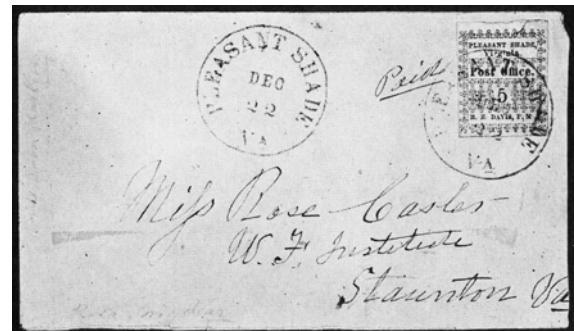 PLEASANT SHADE
DEC
22
VA
Paid
PLEASANT SHADE,
Virginia
Post Office.
5
R. E. DAVIS, P. M
PLEASANT SHADE
22
VA
Miss Rose Casler
W. F. Institute
Staunton Va